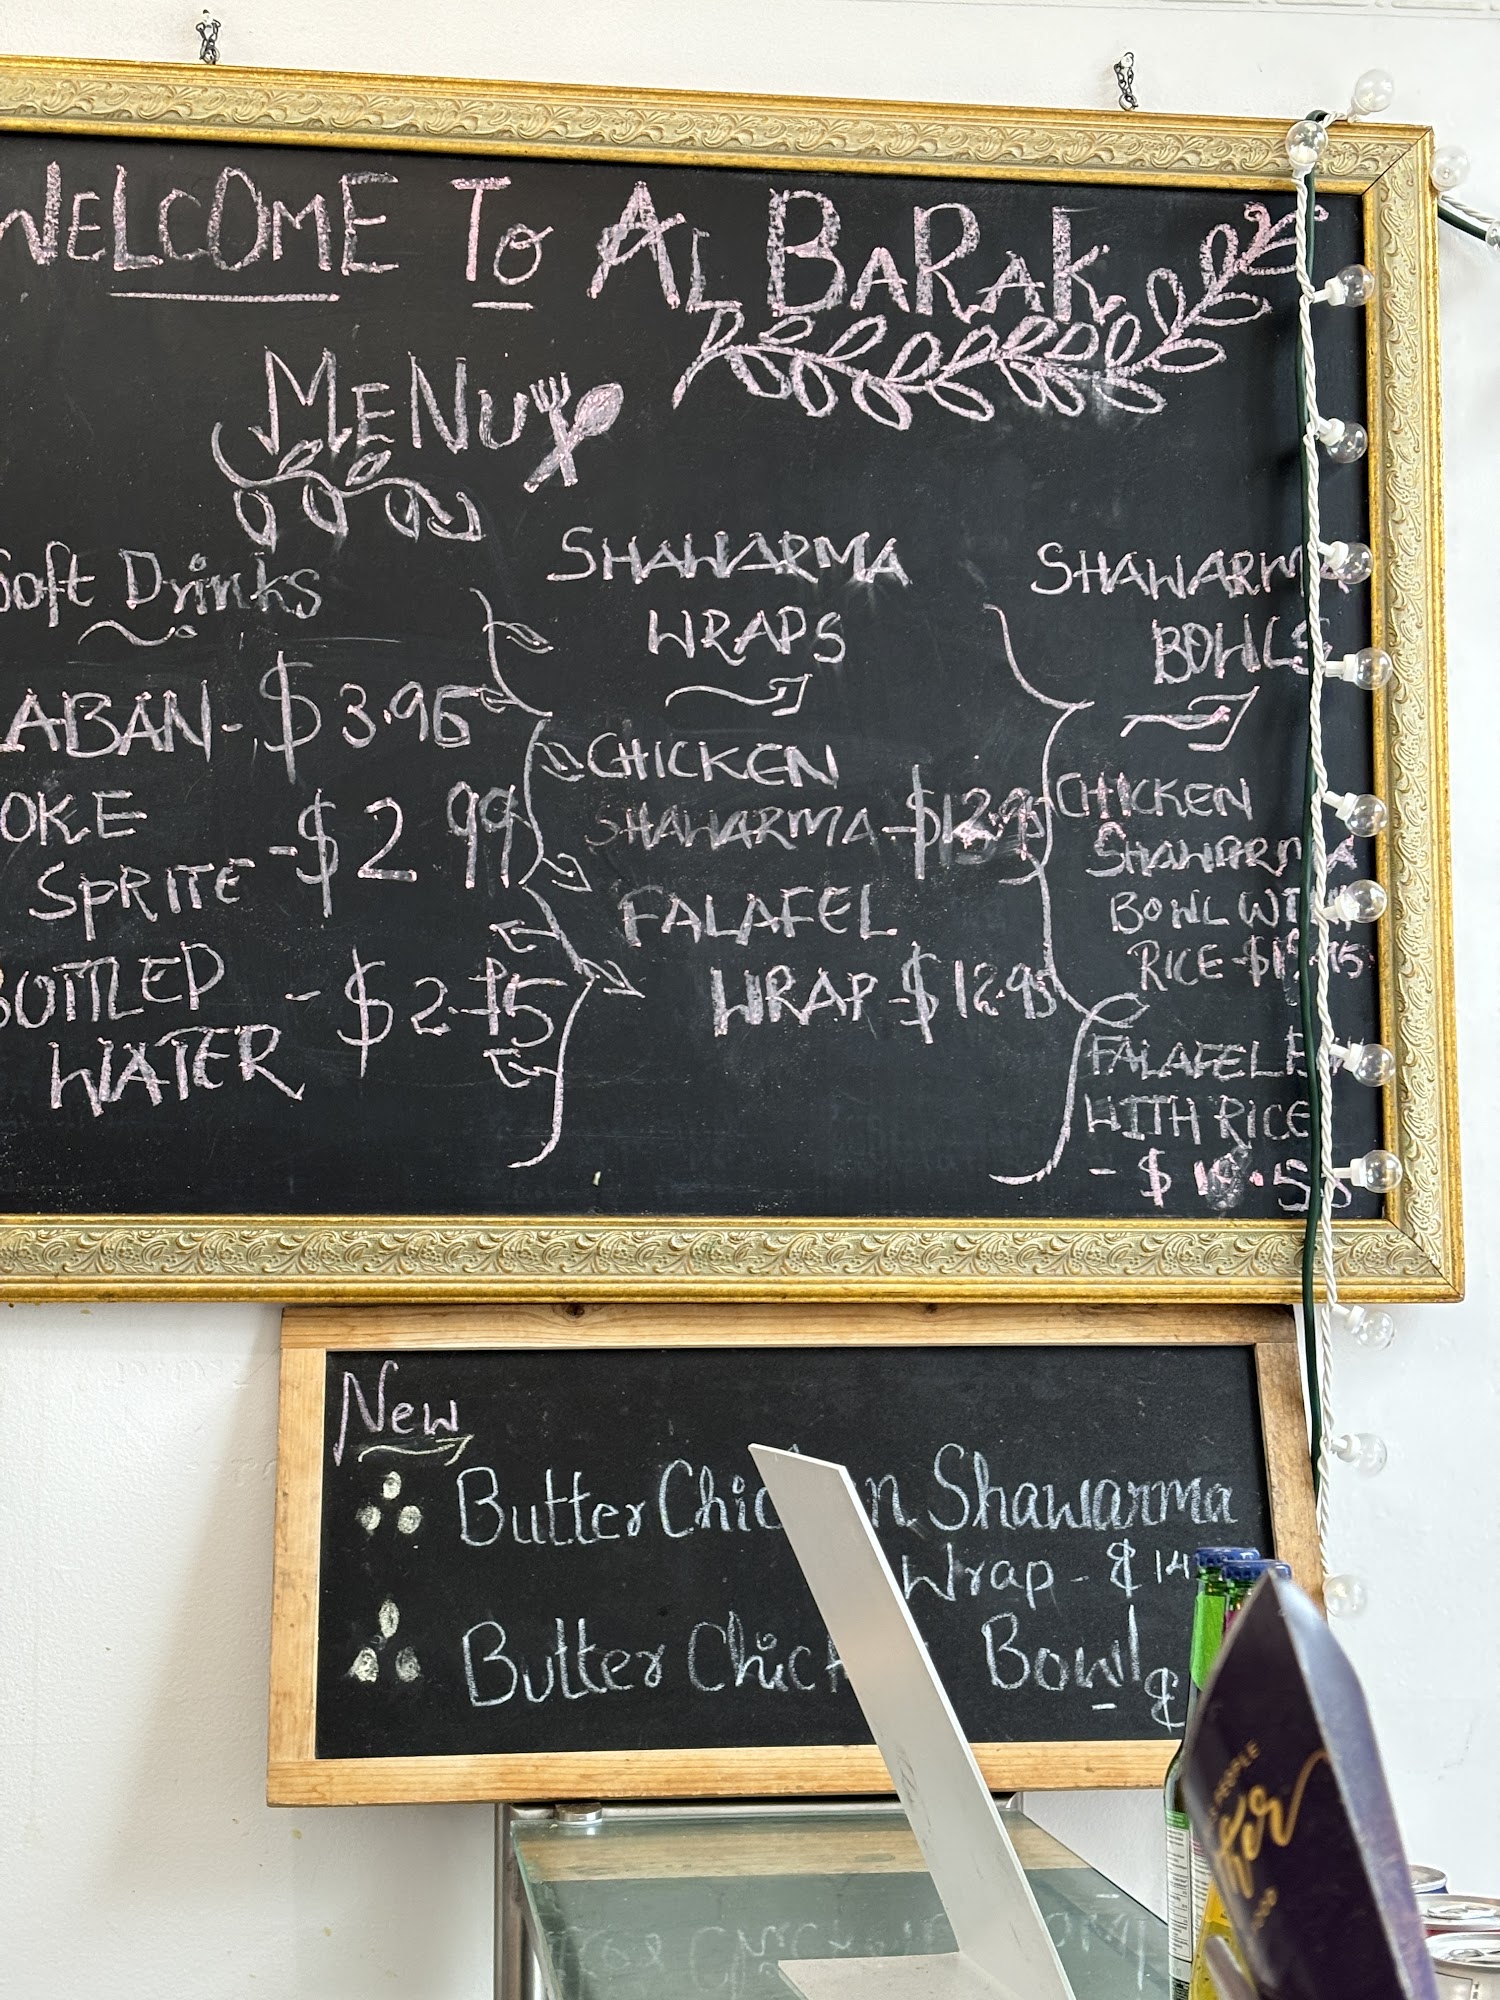 WELCOME TO AL BARAK
MENU
Soft Drinks
LABAN - $3.95
SPRITE - $2.99
BOTTLED
WATER - $2.
SHAWARMA
WRAPS
CHICKEN
SHAWARMA - $12.95
FALAFEL
WRAP - $12.95
SHAWARMA
BOWLS
CHICKEN
SHAWARMA
BOWL
RICE -
FALAFEL
WITH RICE
- $
New
Butter Shawarma
Wrap - $14
Butter Bowl
$
PEOPLE